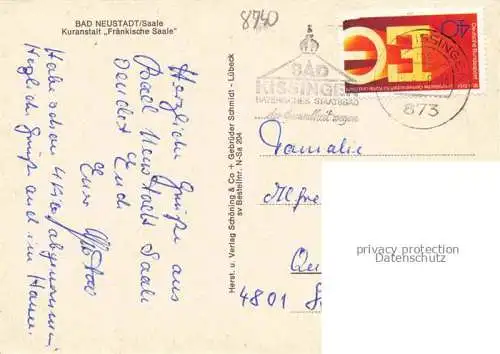 BAD NEUSTADT/Saale
Kuranstalt „Fränkische Saale"
8740
BAD
KISSINGEN
BAYERISCHES STAATSBAD
der Gesundheit wegen
KISSINGEN
873
40
Herzliche Grüße aus
Bad Neustadt Saale
sendet Euch
Euer
Habe schon 4 Kilo abgenommen
Herzliche Grüße auch im Hause.
Herst. u. Verlag Schöning & Co + Gebrüder Schmidt - Lübeck
sv Bestellnr. N-Sa 204
Familie
4801
privacy protection
Datenschutz